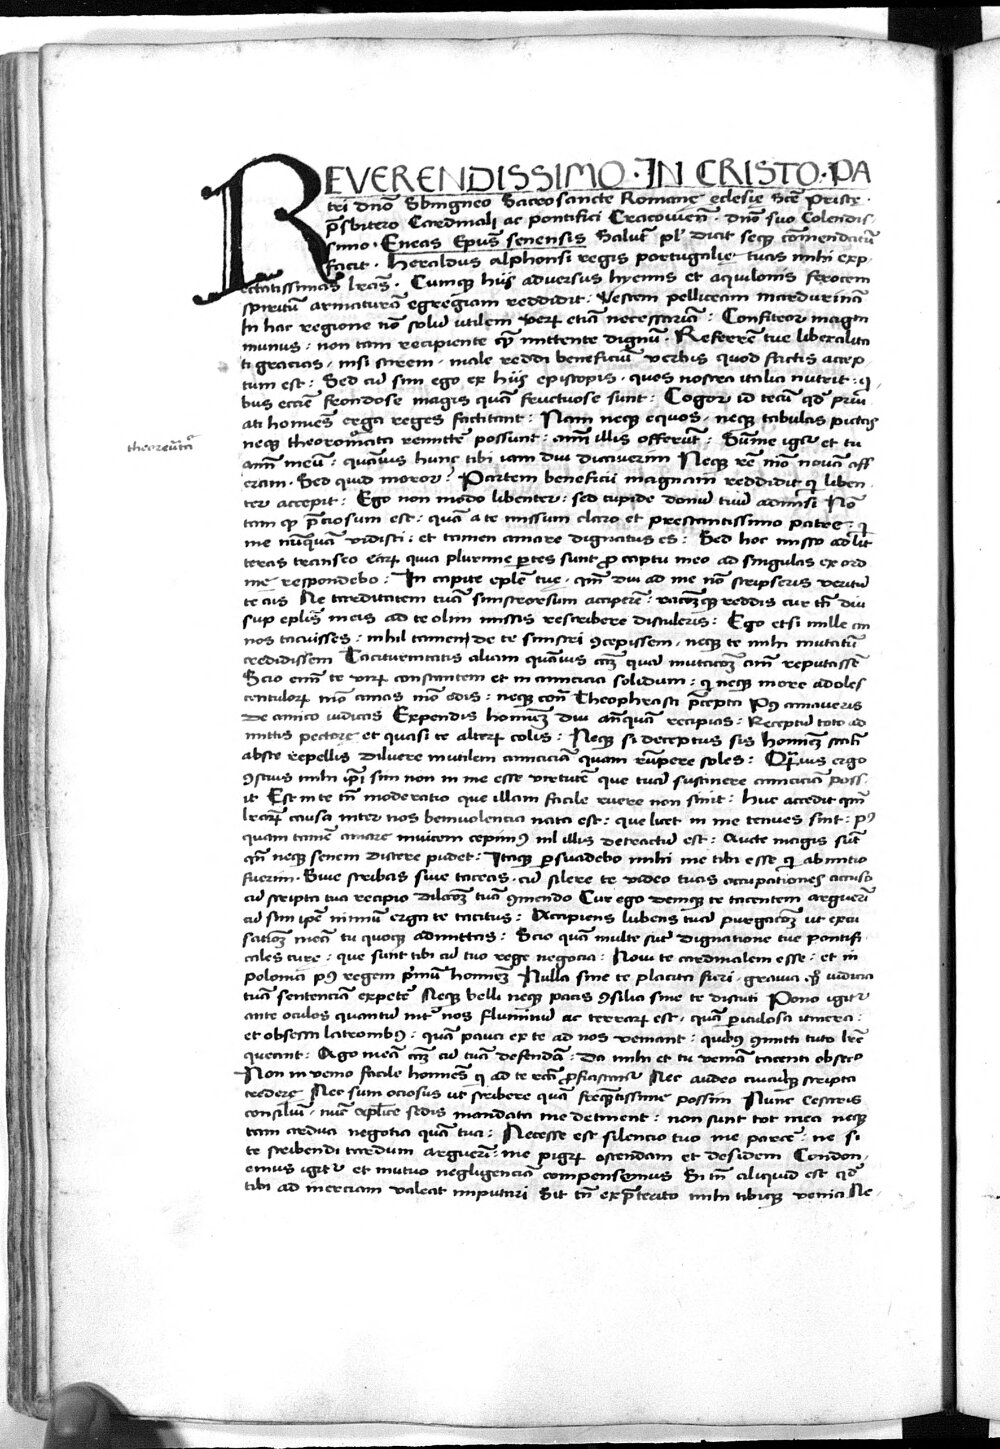 REVERENDISSIMO · IN CRISTO · PA
tri dno͞ Sbingneo Sacrosancte Romanę eclesię Sc͞e Prisce ·
p͞sbitero Cardinali ac pontifici Cracovien͞ · dno͞ suo Colendis
simo · Eneas Ep͞us senensis Salut͞ pl͞ dicit seq͞ co͞mendatu͞
facit · Heraldus alphonsi regis portugalię tuas mihi exp
ectatissimas lr͞as · Cumq͞ hijs adversus hyemis et aquilonis ferocem
spiritu͞ armatura͞ egregiam reddidit : Vestem pelliceam mardurina͞
In hac regione no͞ solu͞ utilem veru͞ etia͞ necessaria͞ : Confiteor magnu͞
munus : non tam recipiente q͞ mittente dignu͞ · Referre͞ tue liberalita
ti gracias · nisi scirem · male reddi beneficiu͞ verbis quod factis accep
tum est : Sed cu͞ sim ego ex hijs episcopis · quos nostra italia nutrit : q
bus eccl͞ie frondose magis qua͞ fructuose sunt : Cogor id tecu͞ qd͞ priu͞
ati homines͞ erga reges factitant : Nam neq͞ equos · neq͞ tabulas pictas
neq͞ theoromata remitt͞e possunt : ani͞m illis offerut͞ : Sume igit͞ et tu
theoreu͞ta
ani͞m meu͞ : qua͞vis hunc tibi iam diu dicaverim Neq͞ re͞ mo͞ nova͞ off
eram · Sed quid moror ? Partem beneficii magnam reddidit q͞ liben
ter accepit : Ego non modo libenter : sed cupide donu͞ tuu͞ admisi No͞
tam q͞ p͞ciosum est : qua͞ a te missum claro et prestantissimo patre : q͞
me nu͞qua͞m vidisti : et tamen amare dignatus es : Sed hoc misso ad lit
teras transeo ear͞ quia plurime p͞tes sunt p͞ captu meo ad singulas ex ord
ine respondebo : In capite ep͞le tue · qm͞ diu ad me no͞ scripseris veritu͞
te ais Ne tarditatem tua͞ sinistrorsum accipere͞ : raco͞zq͞ reddis cur tn͞ diu
sup ep͞lis meis ad te olim missis rescribere distuleris : Ego etsi mille an
nos tacuisses : nihil tamen de te sinistri 9cepissem · neq͞ te mihi mutatu͞
credidissem Taciturnitatis aliam qua͞vis cam͞ qua͞ mutaco͞z ani͞ reputasse͞
Scio eni͞ te viru͞ constantem et in amicicia solidum : q͞ neq͞ more adoles
centulor͞ mo͞ amas mo͞ odis : neq͞ con͞ Theophrasti p͞cepta p9 amaveris
De amico iudicas Expendis homine͞ diu an͞qua͞ recipias : Receptu͞ toto ad
mittis pectore et quasi te alter͞ colis : Neq͞ si deceptus sis homine͞
abste repellis diluere inutilem amicicia͞ quam ru͞pere soles :
9scius mihi ip͞i sim non in me esse virtute͞ que tua͞ sustinere amicicia͞ poss
it Est in te tn͞ moderatio que illam facile ruere non sinit : Huc accedit qm͞
lr͞ar͞ causa inter nos benivolencia nata est : que licet in me tenues sint : p9
quam tame͞ amare invicem cepim9 nil illis detractu͞ est : Aucte magis sut͞
qn͞ neq͞ senem discere pudet : Itaq͞ p͞suadebo mihi me tibi esse q͞ ab initio
fuerim · Sive scribas sive taceas · cu͞ silere te video tuas occupationes accuso
cu͞ scripta tua recipio dilco͞z tua͞ 9mendo Cur ego deniq͞ te tacentem arguer͞i
cu͞ sim ip͞e nimiu͞ erga te tacitus : Accipiens lubens tua͞ purgaco͞z ut excu
satio͞z mea͞ tu quoq͞ admittas : Scio qua͞ multe sut͞ dignatione tue pontifi
cales cure : que sunt tibi cu͞ tuo rege negocia : Novi te cardinalem esse : et in
polonia p9 regem p͞mu͞ homine͞ Nulla sine te placita fieri · gravia q͞ iudicia
tua͞ sentencia͞ expete͞ Neq͞ belli neq͞ pacis 9silia sine te discuti Pono igit͞
ante oculos quantu͞ int͞ nos fluminu͞ ac terrar͞ est · qua͞ p͞iculosa itinera :
et obsessa latronib9 : qua͞ pauci ex te ad nos veniant : quib9 9mitti tuto lr͞e
queant : Ago mea͞ cam͞ cu͞ tua͞ defenda͞ : Da mihi et tu venia͞ tacenti obsecro
Non invenio facile homines͞ q͞ ad te rct͞a p͞ficiscantur Nec audeo cuicu͞q͞ scripta
credere Nec sum ociosus ut scribere qua͞ freq͞ntissime possim Nunc Cesaris
consiliu͞ · nu͞c ap͞lice sedis mandata me detinent : non sunt tot mea neq͞
tam ardua negotia qua͞ tua : Necesse est silencio tuo me parce͞ : ne si
te scribendi tardum arguer͞i : me pigr͞ ostendam et desidem Condon
emus igit͞ et mutuo negligencia͞ compensemus Si tn͞ aliquid est qd͞
tibi ad merciam valeat imputari Sit tn͞ ex p͞terito mihi tibiq͞ venia Ne